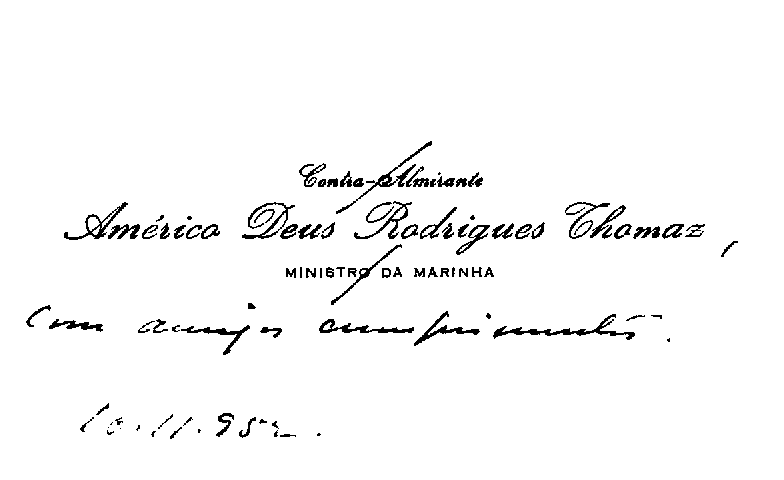 Contra-Almirante
Américo Deus Rodrigues Thomaz,
MINISTRO DA MARINHA
Com amigos cumprimentos.
10.11.952.